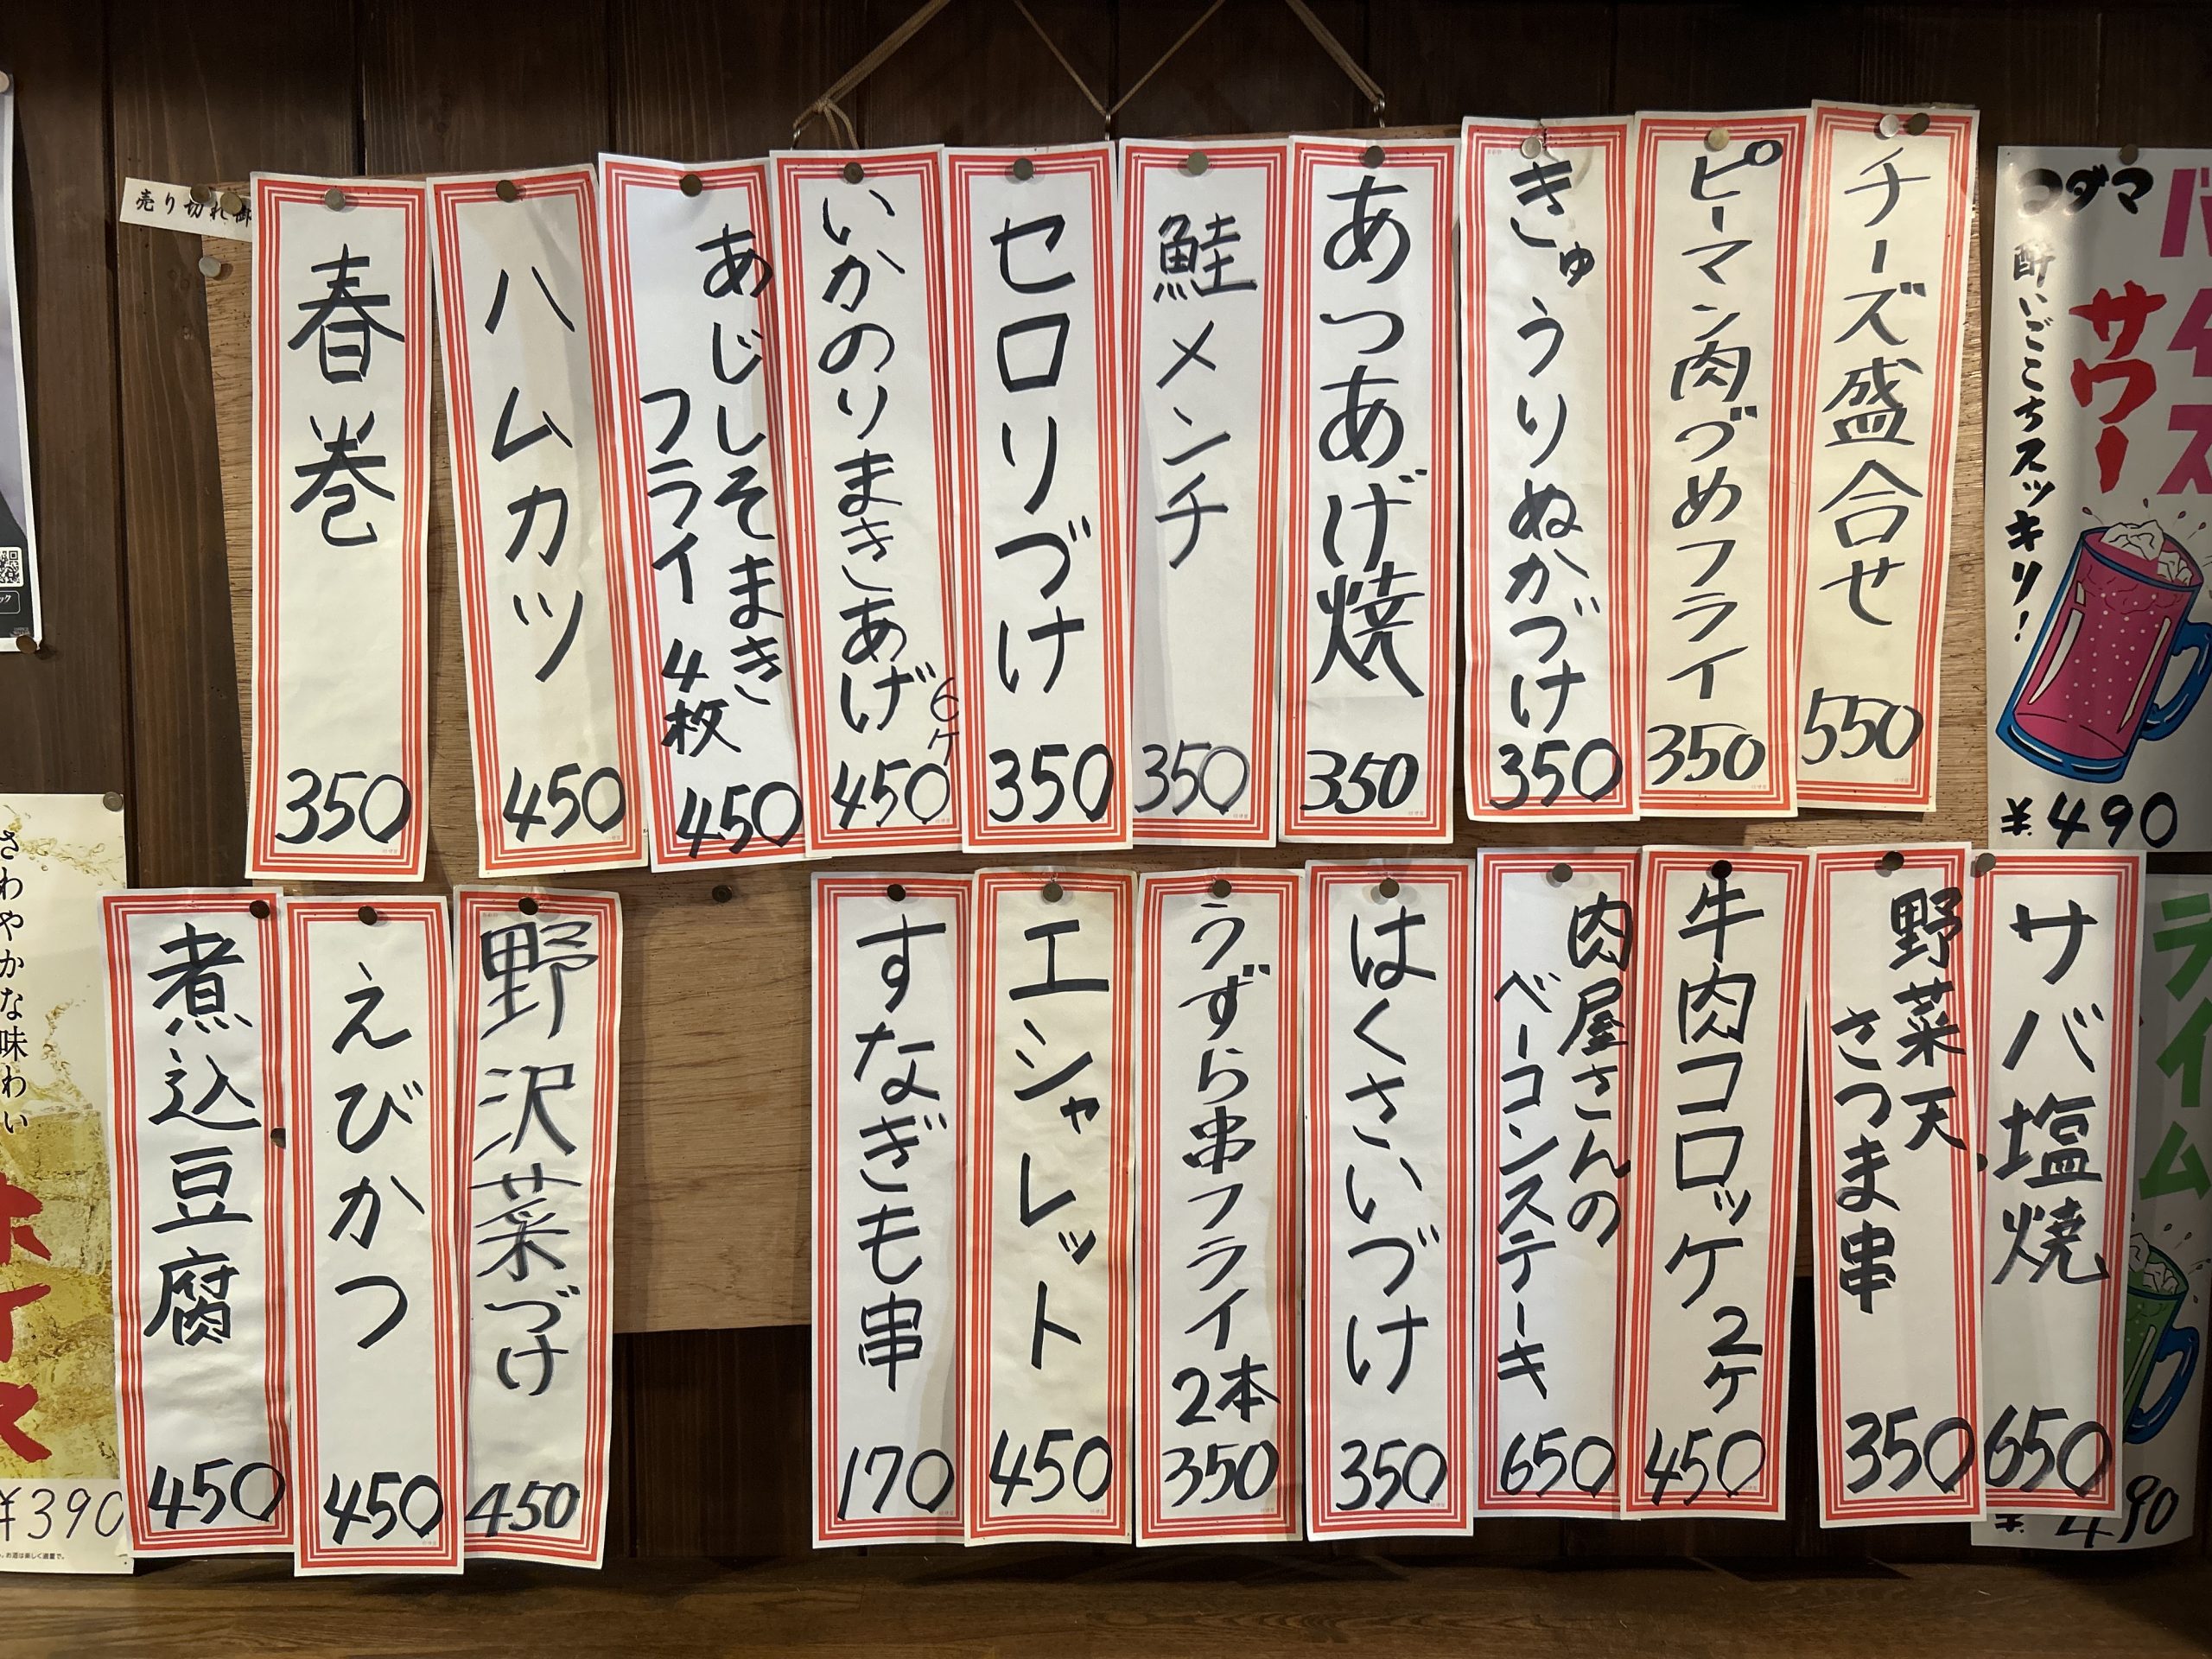 チーズ盛合せ
550
ピーマン肉づめフライ
350
きゅうりぬかづけ
350
あつあげ焼
350
鮭メンチ
350
セロリづけ
350
いかのりまきあげ
6ケ
450
あじしそまき
フライ4枚
450
ハムカツ
450
春巻
350
売り切れ御
サバ塩焼
650
野菜天、
さつま串
350
牛肉コロッケ2ケ
450
肉屋さんの
ベーコンステーキ
650
はくさいづけ
350
うずら串フライ
2本
350
エシャレット
450
すなぎも串
170
野沢菜づけ
450
えびかつ
450
煮込豆腐
450
バイス
サワー
コダマ
酔いごこちスッキリ!
¥490
ライム
¥490
さわやかな味わい
ホイス
¥390
お酒は楽しく適量で。